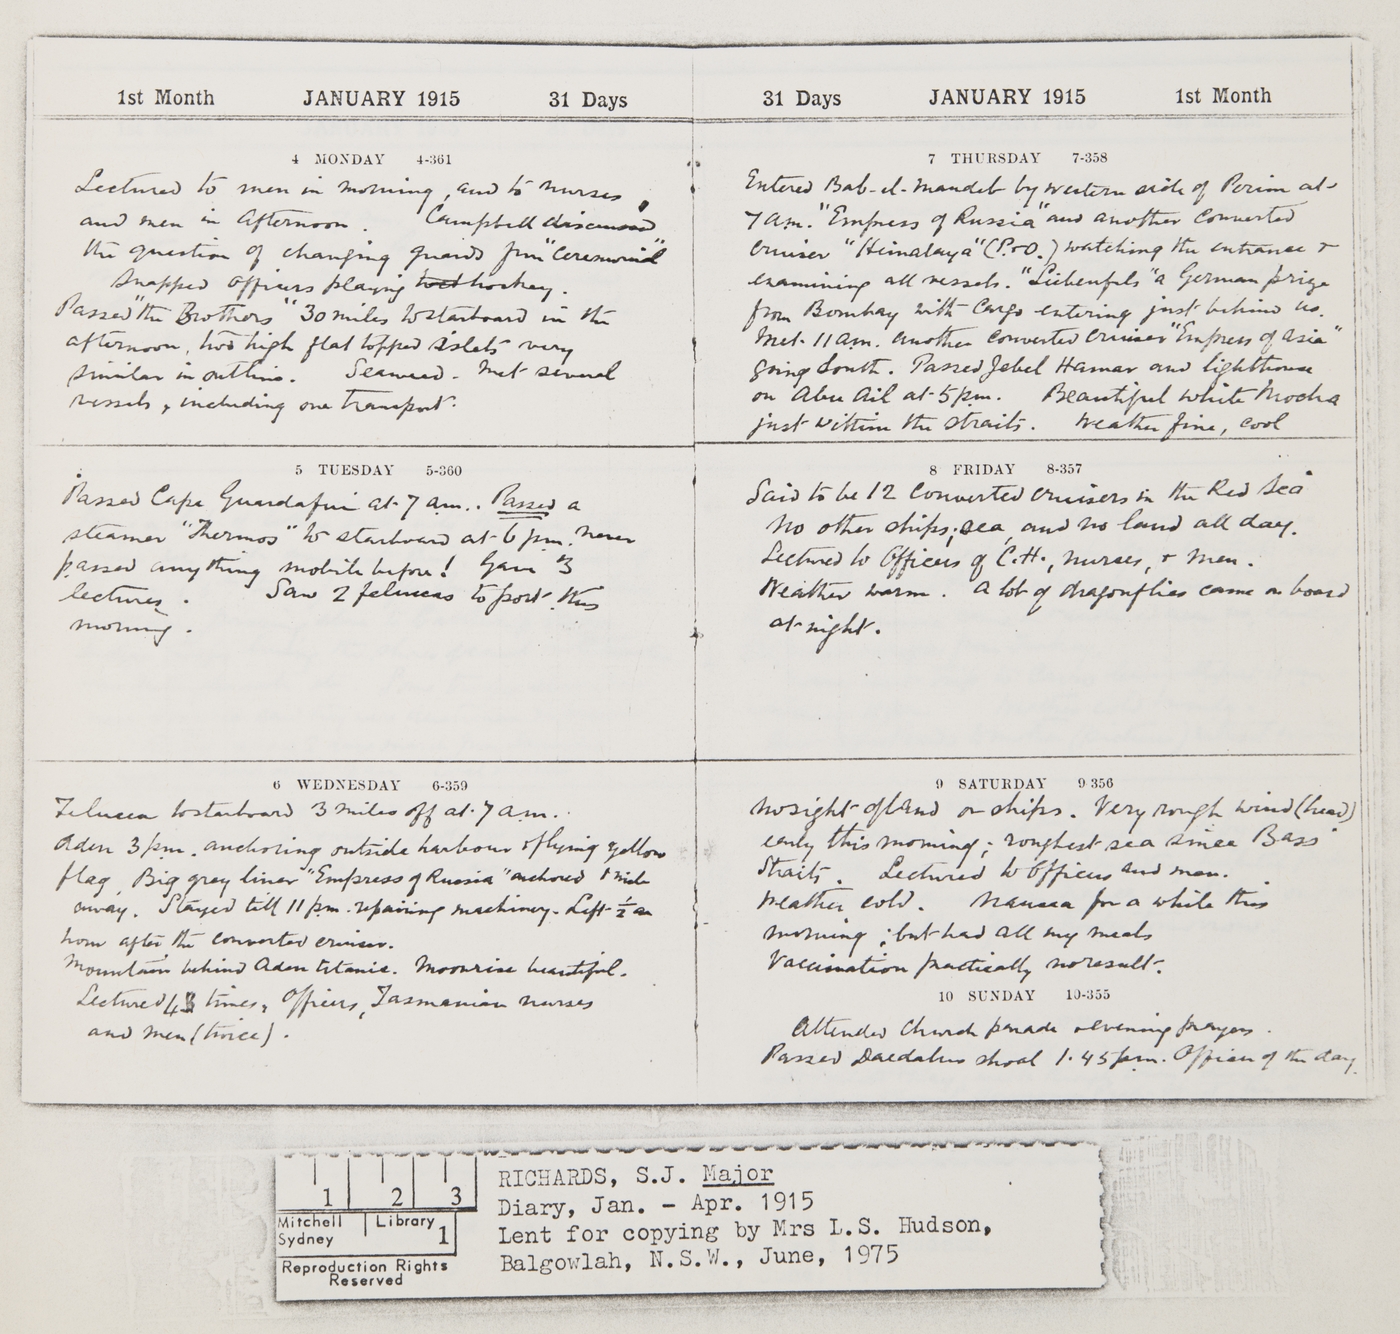 1st Month JANUARY 1915 31 Days
4 MONDAY 4-361
Lectured to men in morning, and to nurses,
and men in Afternoon. Campbell discussed
the question of changing guards from "Ceremonial"
Snapped Officers playing hockey.
Passed "the Brothers" 30 miles to starboard in the
afternoon, two high flat topped islets very
similar in outline. Seaweed. Met several
vessels, including one transport.
5 TUESDAY 5-360
Passed Cape Guardafui at 7 am.. Passed a
steamer "Thermos" to starboard at 6 pm. never
passed anything mobile before! Gave 3
lectures. Saw 2 feluccas to port this
morning.
6 WEDNESDAY 6-359
Felucca to starboard 3 miles off at 7 am.
Aden 3 pm. anchoring outside harbour & flying yellow
flag. Big grey liner "Empress of Russia" anchored 1 mile
away. Stayed till 11 pm. repairing machinery. Left ½ an
hour after the converted cruiser.
Mountain behind Aden titanic. Moonrise beautiful.
Lectured 4 times, Officers, Tasmanian nurses
and men (twice).
31 Days JANUARY 1915 1st Month
7 THURSDAY 7-358
Entered Bab-el-Mandeb by western side of Perim at
7 am. "Empress of Russia" and another converted
cruiser "Himalaya" (P.&O.) watching the entrance &
examining all vessels. "Liebenfels" a German prize
from Bombay with cargo entering just behind us.
Met 11 am. another converted cruiser "Empress of Asia"
going South. Passed Jebel Hamar and lighthouse
on Abu Ail at 5 pm. Beautiful white Mocha
just within the straits. Weather fine, cool
8 FRIDAY 8-357
Said to be 12 converted cruisers in the Red Sea
No other ships; sea, and no land all day.
Lectured to Officers of C.H., nurses, & men.
Weather warm. A lot of dragonflies came on board
at night.
9 SATURDAY 9 356
No sight of land or ships. Very rough wind (head)
early this morning; roughest sea since Bass
Straits. Lectured to Officers and men.
Weather cold. Nausea for a while this
morning; but had all my meals
Vaccination practically no result.
10 SUNDAY 10-355
Attended Church parade & evening prayers.
Passed Daedalus shoal 1.45 pm. Officer of the day.
1 2 3
Mitchell Library
Sydney 1
Reproduction Rights
Reserved
RICHARDS, S.J. Major
Diary, Jan. - Apr. 1915
Lent for copying by Mrs L.S. Hudson,
Balgowlah, N.S.W., June, 1975